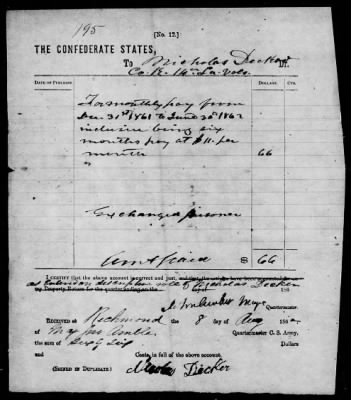 195
[No. 12.]
THE CONFEDERATE STATES,
To Nicholas Decker Dr.
Co. K. 14th La. Vols.
DATE OF PURCHASE. DOLLARS. CTS.
For monthly pay from
Dec. 31st 1861 to June 30th 1862
inclusive being six
months pay at $11. per
month 66
"
Exchanged prisoner
Amt Paid $ 66
I CERTIFY that the above account is correct and just,
as descriptive roll of Nicholas Decker
my Property Return for the quarter ending on the day of 186
Quartermaster.
RECEIVED AT Richmond the 8 of Aug 186
of Quartermaster C. S. Army,
the sum of Sixty Six Dollars
and Cents, in full of the above account.
(SIGNED IN DUPLICATE.) Nicholas Decker